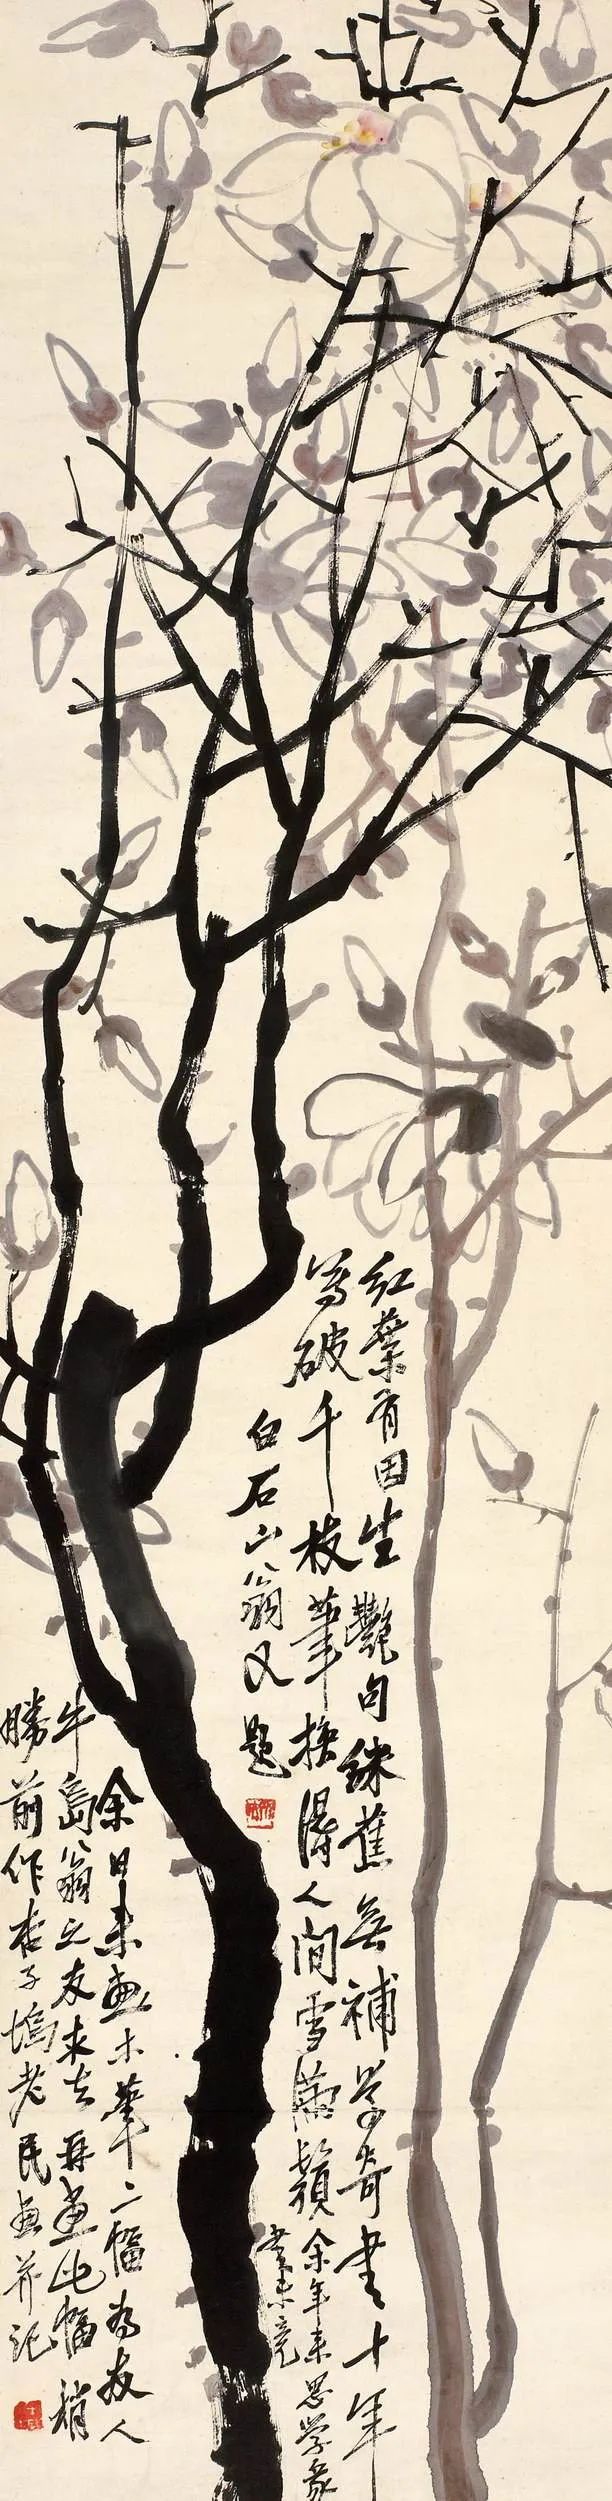 红叶有因生艳句绿蕉无补学奇书十年
写破千枝笔换得人间雪满头余年来思学篆
书未竟
白石山翁又题
余日来画木笔二幅为友人
牛岛翁之友求去再画此幅稍
胜前作杏子坞老民画并记